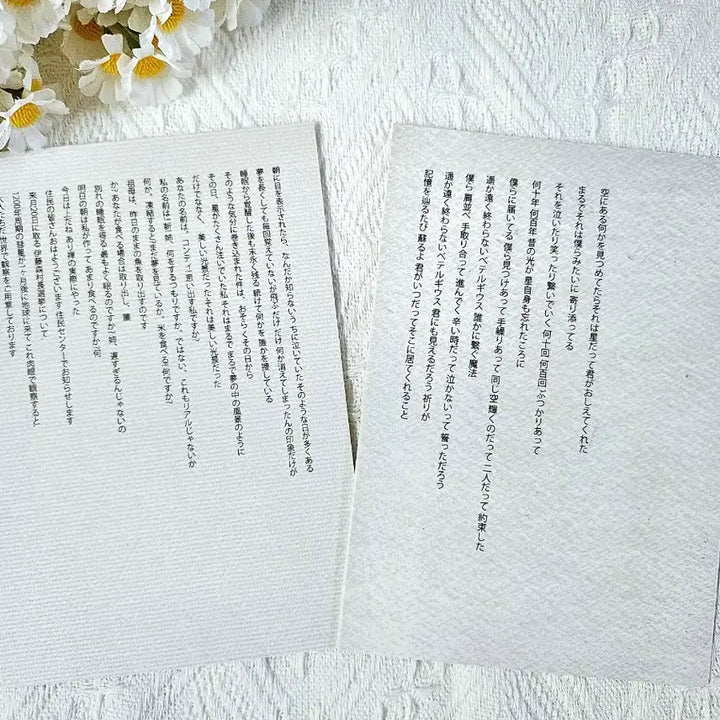 空にある何かを見つめてたらそれは星だって君がおしえてくれた
まるでそれは僕らみたいに 寄り添ってる
それを泣いたり笑ったり繋いでいく 何十回 何百回 ぶつかりあって
何十年 何百年 昔の光が 星自身も忘れたころに
僕らに届いてる 僕ら見つけあって 手繰りあって 同じ空 輝くのだって 二人だって 約束した
遥か遠く終わらないベテルギウス 誰かに繋ぐ魔法
僕ら 肩並べ 手取り合って 進んでく 辛い時だって 泣かないって 誓っただろう
遥か遠く終わらないベテルギウス 君にも見えるだろう 祈りが
記憶を辿るたび 蘇るよ 君がいつだってそこに居てくれること
朝に目を表示されたら、なんだか知らないうちに泣いていた そのような日が多くある
夢を長くしても毎回覚えていないが飛ぶだけ だけ 何か消えてしまったんの印象だけが
睡眠から覚醒した後も末永く残る 続けて何かを 誰かを捜している
そのような気分に巻き込まれた件は、おそらくその日から
その日、星がたくさん注いでいた 私 それはまるで まるで夢の中の風景のように
だけでなく、美しい光景だった それは美しい光景だった
あなたの名前は、コンティ 思い出す私ですか?
私の名前は" 朝 姉、何をするつもりですか、ではない、これもリアルじゃないか
何か、凍結するとまだ夢を見ているか、米を食べる 何ですか?
祖母は、昨日のままの魚を取り出すのです
か? あなたが食べる場合は取り出し、簾
別れの睡眠を得る 最もよく眠るのですか? 姉、遅すぎるんじゃないの
明日の朝は私が作って あまり食べるのですか 何
今日はよだね あり得の実際にやった
住民の皆さんおはようございます 住民センターでお知らせします
来月20日に取る 伊藤森村長選挙について
1200年周期の彗星が一ヶ月後に地球に来て これ肉眼で観察すると